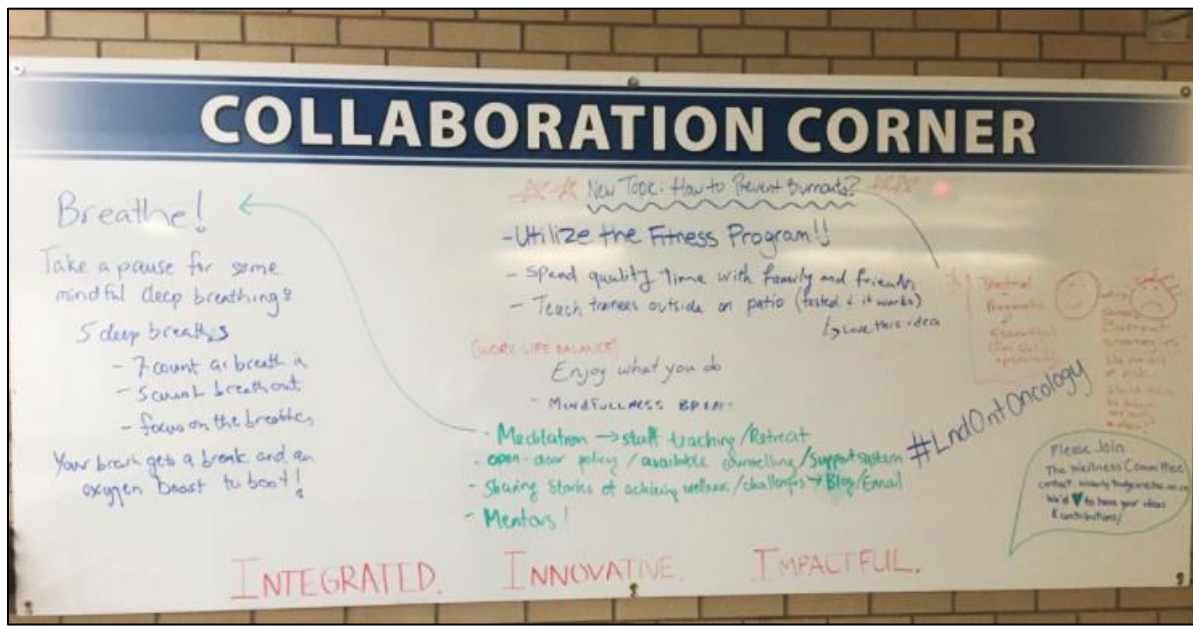 COLLABORATION CORNER
Breathe!
Take a pause for some
mindful deep breathing?
5 deep breaths
- 7 count as breath in
- 5 count breath out
- focus on the breaths
Your brain gets a break and an
oxygen boost to boot!
New Topic: How to Prevent Burnouts?
- Utilize the Fitness Program!!
- Spend quality time with family and friends
- Teach trainees outside on patio (tested & it works)
↳ Love this idea
[WORK-LIFE BALANCE]
Enjoy what you do
- MINDFULLNESS BREAK
- Meditation → staff teaching/Retreat
- open-door policy / available counselling / support system
- Sharing stories of achieving wellness/challenges → Blog/Email
- Mentors!
#LndOntOncology
Please Join
The Wellness Committee
contact
We'd ♥ to have your ideas
& contributions!
INTEGRATED. INNOVATIVE. IMPACTFUL.